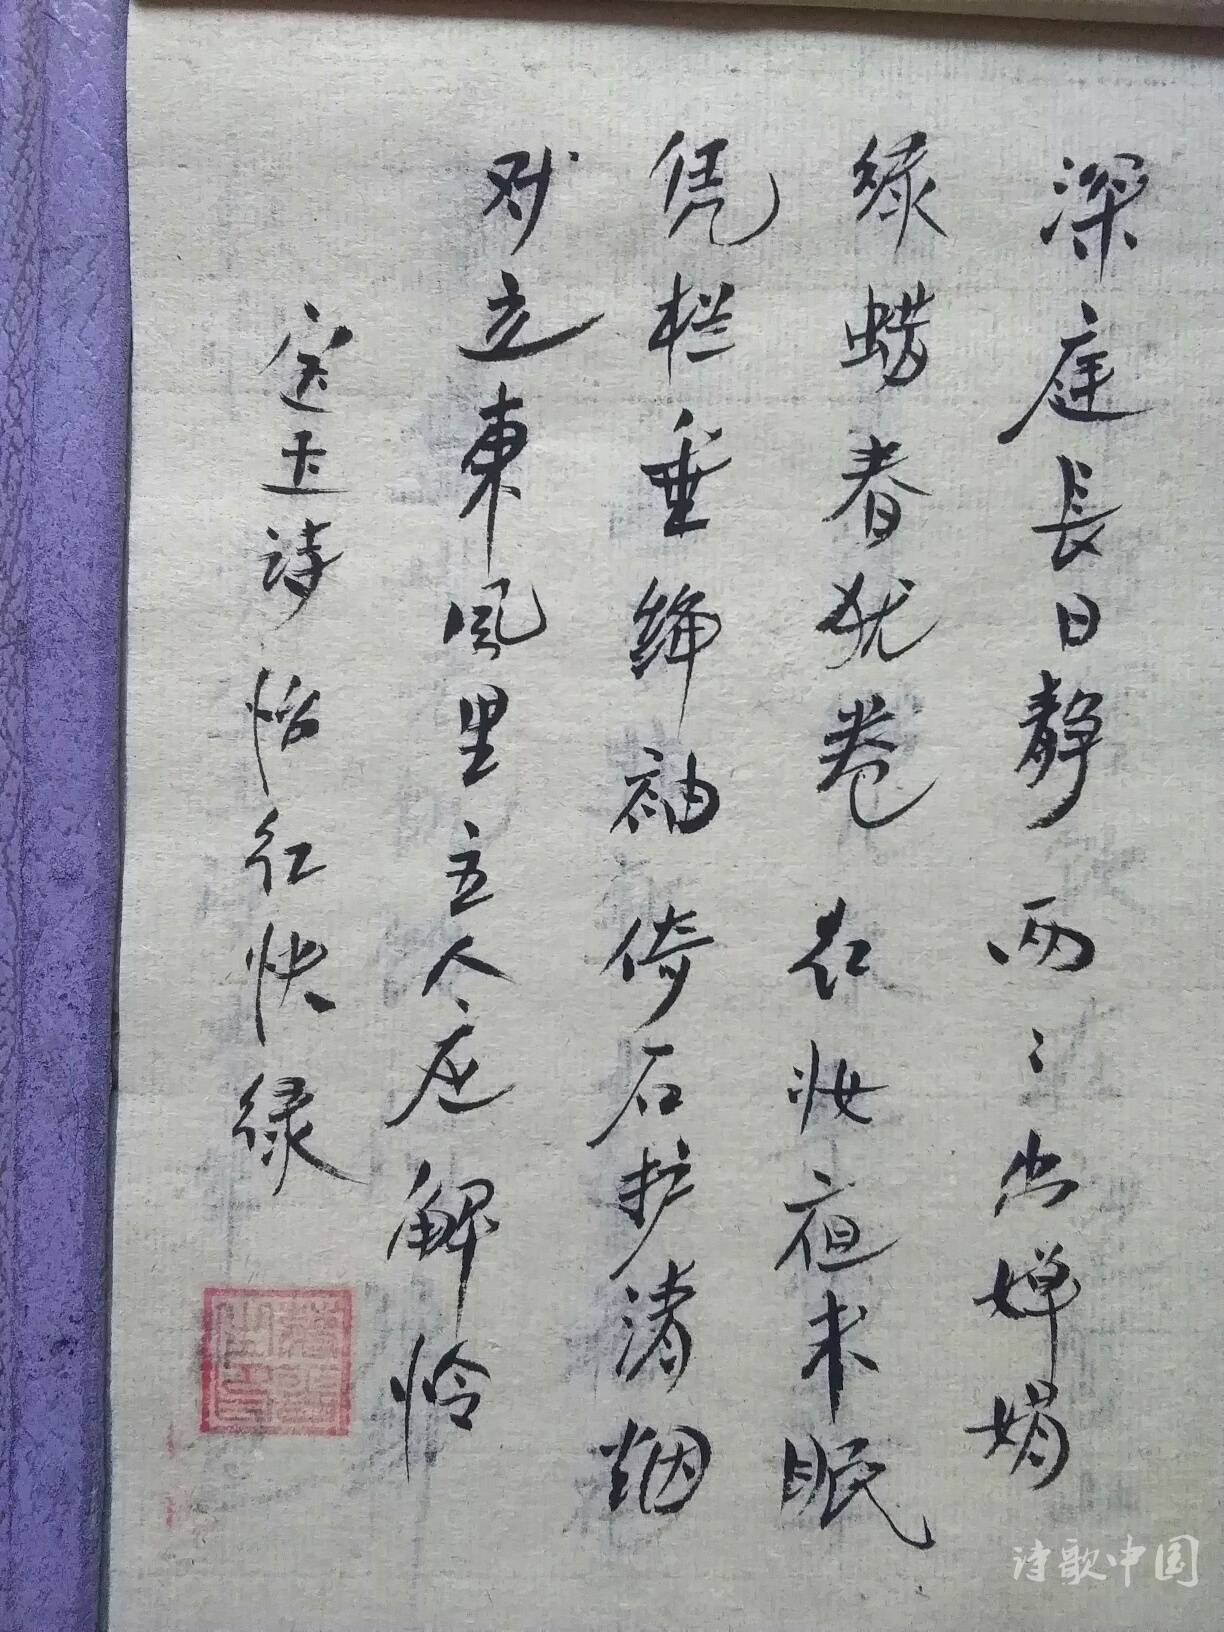 深庭長日静 两々出婵娟
绿蜡春犹卷 红妆夜未眠
凭栏垂绛袖 倚石护清烟
对立東风里主人应解怜
宝玉诗 怡红快绿
诗歌中国